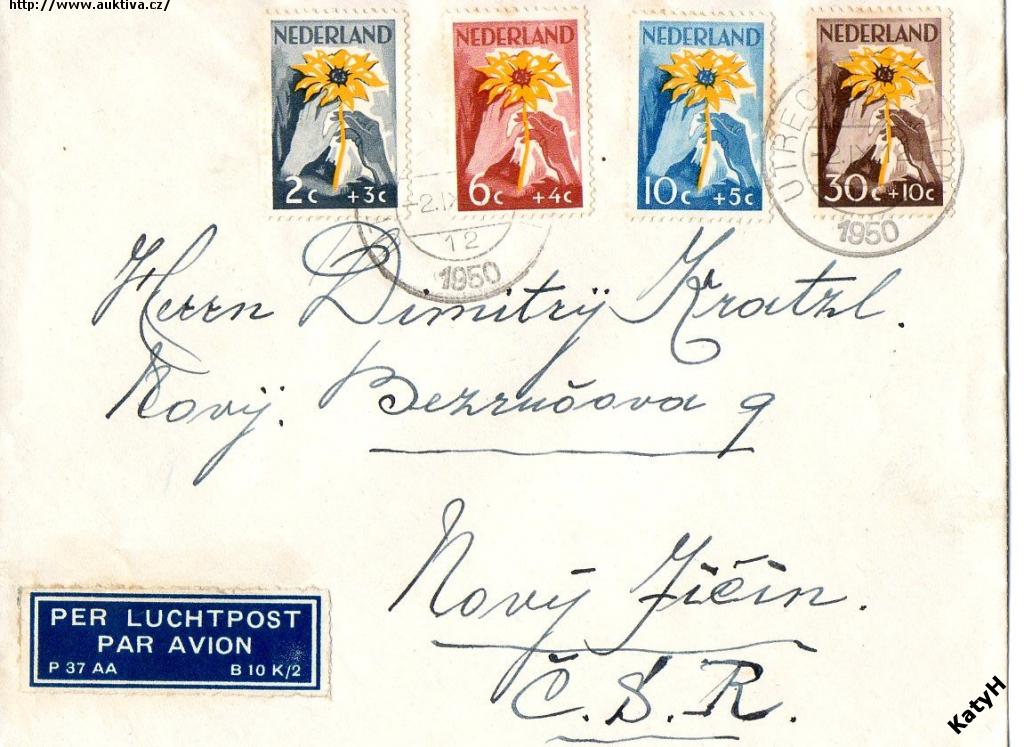 http://www.auktiva.cz/
NEDERLAND NEDERLAND NEDERLAND NEDERLAND
2c +3c 6c +4c 10c +5c 30c +10c
-2.IX
12
1950
UTREC
1950
Herrn Dimitrÿ Kratzl.
Novÿ. Bezručova 9
Nový Jičín.
Č.S.R.
PER LUCHTPOST
PAR AVION
P 37 AA B 10 K/2
KatyH